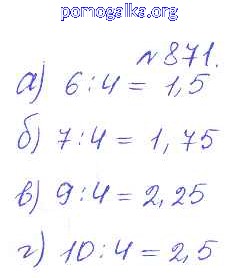 pomogalka.org
№871.
а) 6:4 = 1,5
б) 7:4 = 1,75
в) 9:4 = 2,25
г) 10:4 = 2,5